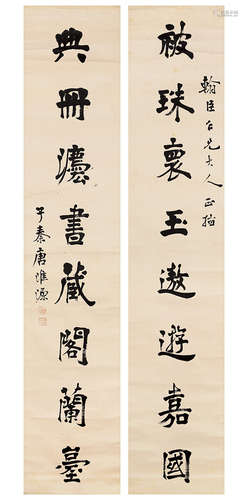 翰臣仁兄大人正
被珠褱玉遨遊嘉國
典冊灋書藏閣蘭臺
子秦唐淮源